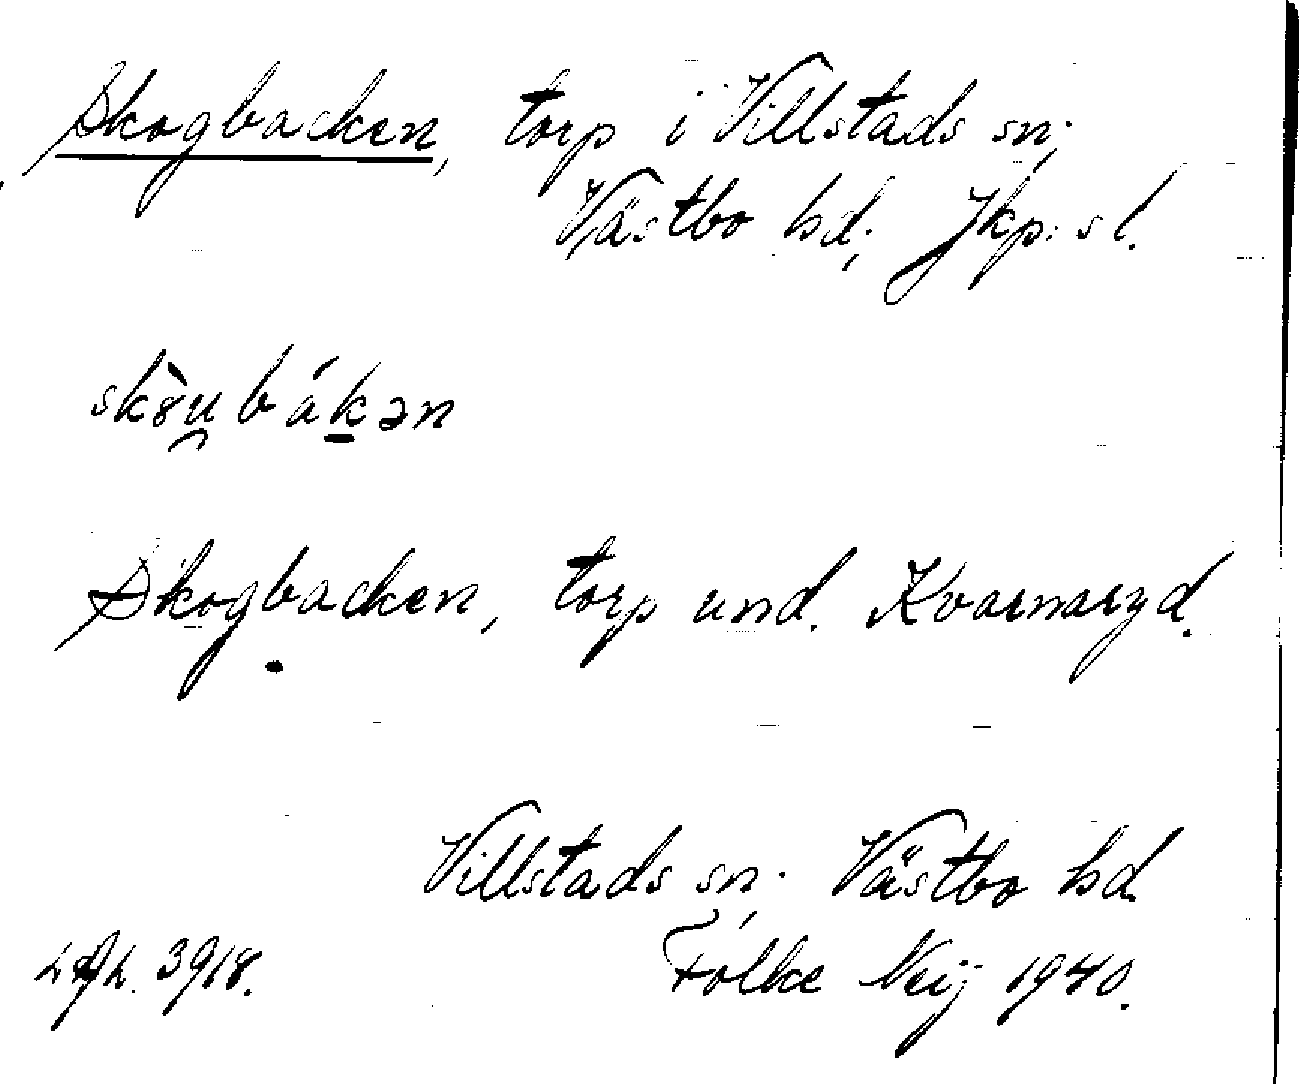 Skogbacken, torp i Villstads sn;
Västbo hd; Jkp:s l.
Skogbacken, torp und. Kvarnaryd.
Villstads sn, Västbo hd
3918. Folke Neij 1940.